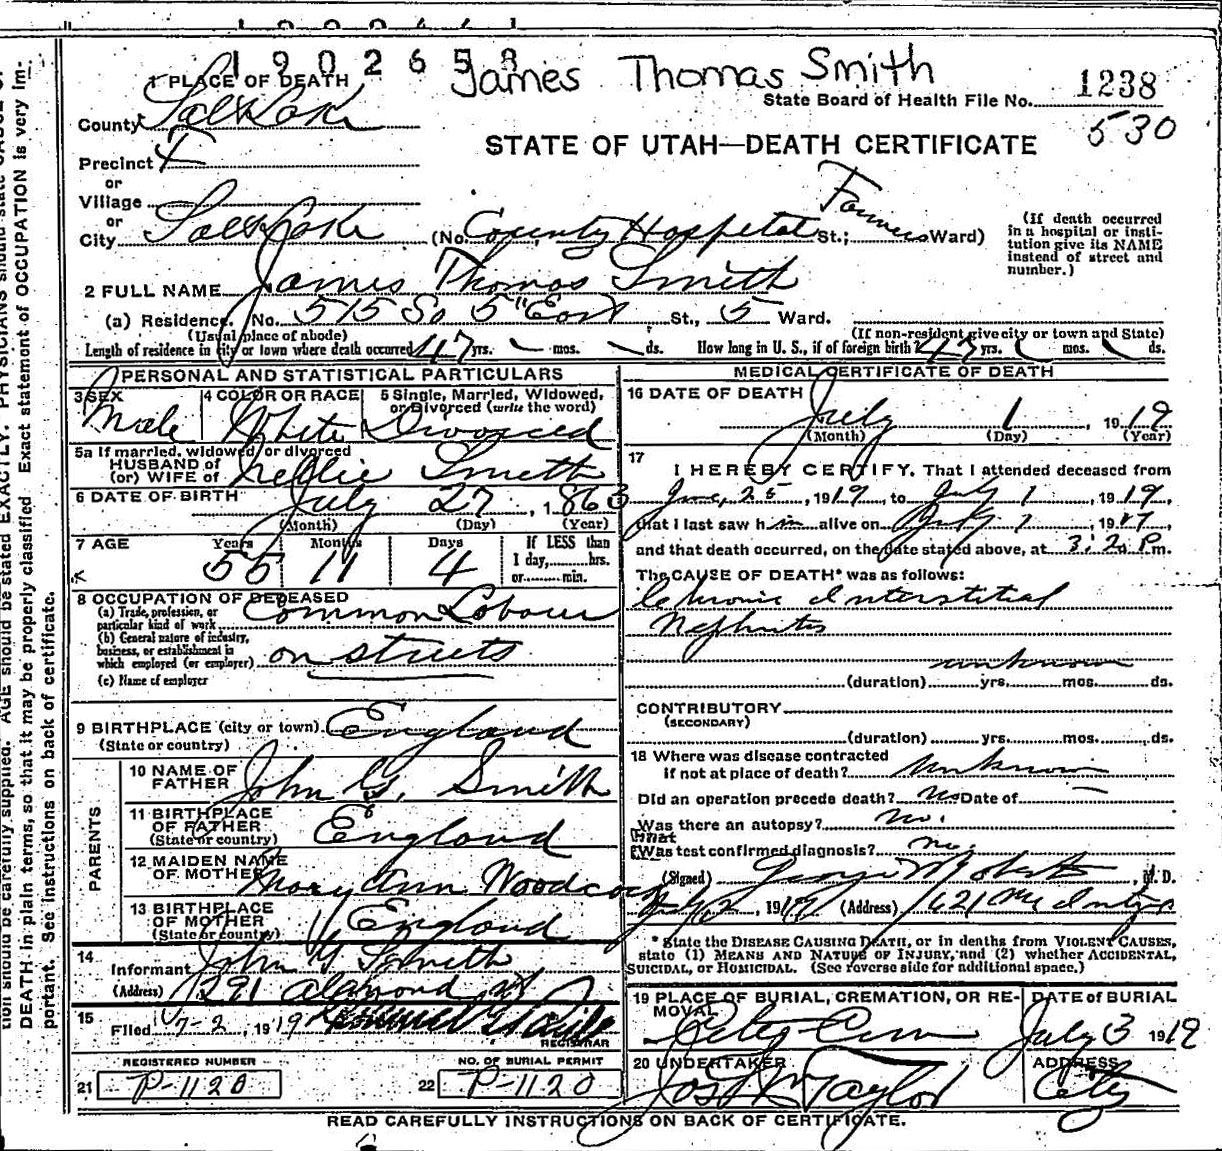 1902653
James Thomas Smith
1 PLACE OF DEATH
State Board of Health File No. 1238
530
County Salt Lake
STATE OF UTAH—DEATH CERTIFICATE
Precinct
or
Village
or
City Salt Lake (No. County Hospital St.; Farmers Ward)
(If death occurred in a hospital or insti-
tution give its NAME
instead of street and
number.)
2 FULL NAME James Thomas Smith
(a) Residence. No. 515 So 5" East St., 5 Ward.
(Usual place of abode) (If non-resident give city or town and State)
Length of residence in city or town where death occurred 47 yrs. mos. ds. How long in U. S., if of foreign birth? 47 yrs. mos. ds.
PERSONAL AND STATISTICAL PARTICULARS
3 SEX Male
4 COLOR OR RACE White
5 Single, Married, Widowed,
or Divorced (write the word)
Divorced
5a If married, widowed, or divorced
HUSBAND of
(or) WIFE of Nellie Smith
6 DATE OF BIRTH July 27, 1863
(Month) (Day) (Year)
7 AGE Years Months Days
55 11 4
If LESS than
1 day, hrs.
or min.
8 OCCUPATION OF DECEASED
(a) Trade, profession, or
particular kind of work Common Labour
(b) General nature of industry,
business, or establishment in
which employed (or employer) on streets
(c) Name of employer
9 BIRTHPLACE (city or town) England
(State or country)
PARENTS
10 NAME OF
FATHER John G. Smith
11 BIRTHPLACE
OF FATHER England
(State or country)
12 MAIDEN NAME
OF MOTHER Mary Ann Woodcock
13 BIRTHPLACE
OF MOTHER England
(State or country)
14
Informant John Smith
(Address) 291 Almond st
15
Filed 7-2, 1919
REGISTRAR
REGISTERED NUMBER
21 P-1120
NO. OF BURIAL PERMIT
22 P-1120
MEDICAL CERTIFICATE OF DEATH
16 DATE OF DEATH July 1, 1919
(Month) (Day) (Year)
17
I HEREBY CERTIFY, That I attended deceased from
June, 25, 1919, to July 1, 1919,
that I last saw him alive on July 1, 1917,
and that death occurred, on the date stated above, at 3:20 P.m.
The CAUSE OF DEATH* was as follows:
Chronic Interstitial
Nephritis
unknown
(duration) yrs. mos. ds.
CONTRIBUTORY
(SECONDARY)
(duration) yrs. mos. ds.
18 Where was disease contracted
if not at place of death? unknown
Did an operation precede death? no Date of
Was there an autopsy? no.
What
Was test confirmed diagnosis? no
(Signed) George Roberts, M. D.
July 2, 1919 (Address) 621 McIntyre
* State the DISEASE CAUSING DEATH, or in deaths from VIOLENT CAUSES,
state (1) MEANS AND NATURE OF INJURY, and (2) whether ACCIDENTAL,
SUICIDAL, or HOMICIDAL. (See reverse side for additional space.)
19 PLACE OF BURIAL, CREMATION, OR RE-
MOVAL City Cem
DATE of BURIAL
July 3 1919
20 UNDERTAKER
Jos Wm Taylor
ADDRESS
City
READ CAREFULLY INSTRUCTIONS ON BACK OF CERTIFICATE.
tion should be carefully supplied. AGE should be stated EXACTLY. PHYSICIANS should state CAUSE OF
DEATH in plain terms, so that it may be properly classified. Exact statement of OCCUPATION is very im-
portant. See instructions on back of certificate.